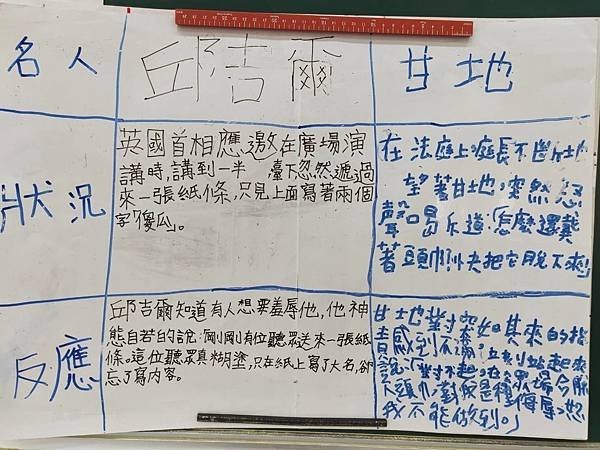 名人
邱吉爾
甘地
狀況
英國首相應邀在廣場演
講時,講到一半,臺下忽然遞過
來一張紙條,只見上面寫著兩個
字「傻瓜」。
在法庭上,庭長不斷地
望著甘地,突然怒
聲喝斥道:「怎麼還戴
著頭巾!快把它脫下來!」
反應
邱吉爾知道有人想要羞辱他,他神
態自若的說:「剛剛有位聽眾送來一張紙
條。這位聽眾真糊塗,只在紙上寫了大名,卻
忘了寫內容。
甘地對突如其來的指
責感到不滿,立刻站起來
說:「對不起,在眾場合解
下頭巾,對我是種侮辱。恕
我不能做到。」